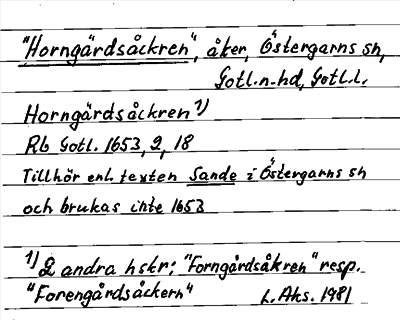 "Horngärdsåckren", åker, Östergarns sn,
Gotl.n.hd, Gotl.l.
Horngärdsåckren 1)
Rb Gotl. 1653, 2, 18
Tillhör enl. texten Sande i Östergarns sn
och brukas inte 1653
1) 2 andra hskr: "Forngårdsåkren" resp.
"Forengårdsåckern" L. Aks. 1981